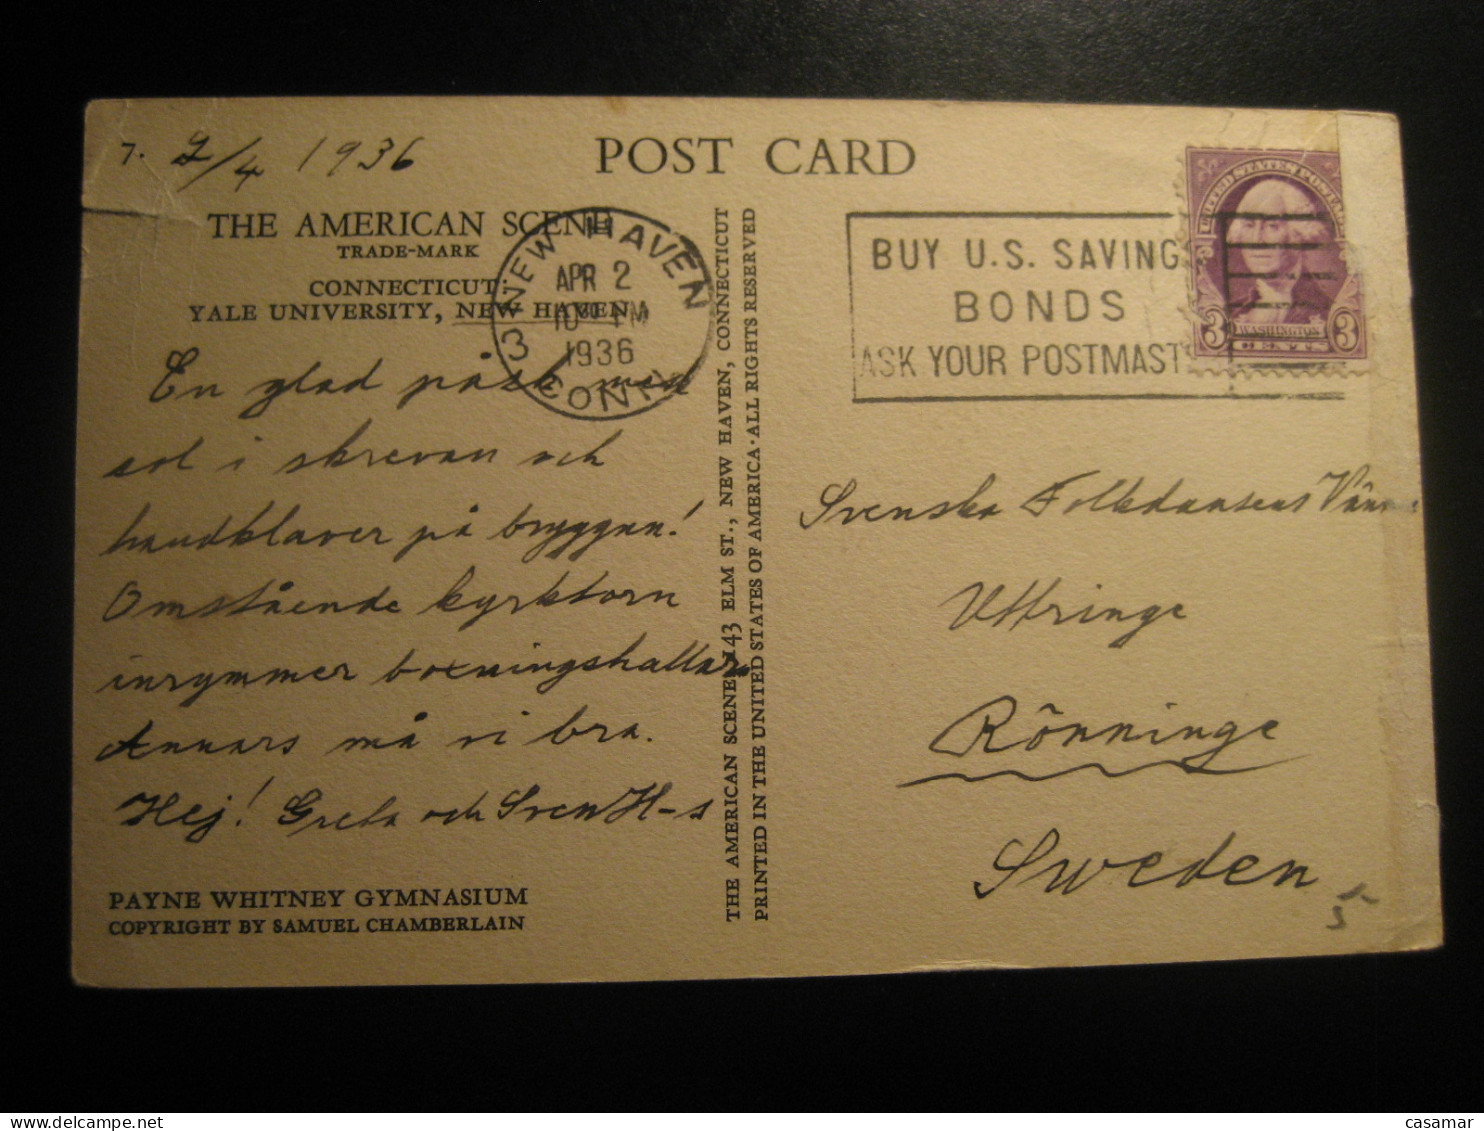 7. 2/4 1936
POST CARD
THE AMERICAN SCENE
TRADE-MARK
CONNECTICUT:
YALE UNIVERSITY, NEW HAVEN
NEW HAVEN
APR 2
10 PM
1936
CONN.
3
BUY U.S. SAVINGS
BONDS
ASK YOUR POSTMAST
UNITED STATES POSTAGE
3 WASHINGTON 3
CENTS
En glad påsk med
sol i skrevan och
handklaver på bryggan!
Omstående kyrktorn
inrymmer boxningshallar
Annars må vi bra.
Hej! Greta och Sven H-s
PAYNE WHITNEY GYMNASIUM
COPYRIGHT BY SAMUEL CHAMBERLAIN
THE AMERICAN SCENE, 143 ELM ST., NEW HAVEN, CONNECTICUT
PRINTED IN THE UNITED STATES OF AMERICA · ALL RIGHTS RESERVED
Svenska Folkdansens Vänner
Uttringe
Rönninge
Sweden
casamar
www.delcampe.net